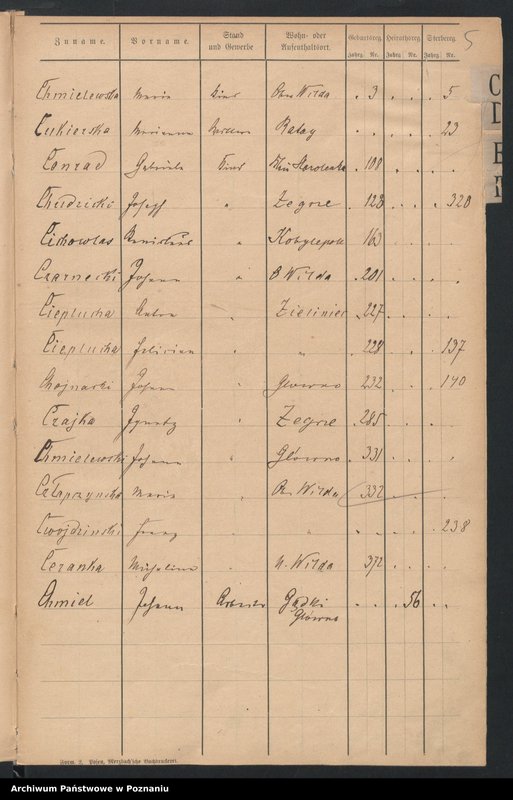 5
Zuname. Vorname. Stand und Gewerbe Wohn- oder Aufenthaltsort. Geburtsreg. Heirathsreg. Sterbereg.
Jahrg. Nr. Jahrg. Nr. Jahrg. Nr.
Chmielewska Maria Kind Ober Wilda 3 5
Cukierska Marianna Rataj 23
Conrad Gabriele Kind Starolenka 108
Chudzicki Joseph " Zegrze 128 320
Cichowlas Stanislaus " Kobylepole 163
Czarnecki Johann " O Wilda 201
Cieplucha Anton " Zieliniec 227
Cieplucha Felician " " 228 137
Chojnacki Johann " Glowno 232 140
Czajka Ignatz " Zegrze 285
Chmielewski Johann " Główno 331
Maria " Ob. Wilda 332
Cwojdzinski Franz " " 238
Ceranka Michalina " U. Wilda 372
Chmiel Johann Arbeiter Gądki 56
Główno
Form. 2. Posen, Merzbach'sche Buchdruckerei.
C
D
E
Archiwum Państwowe w Poznaniu